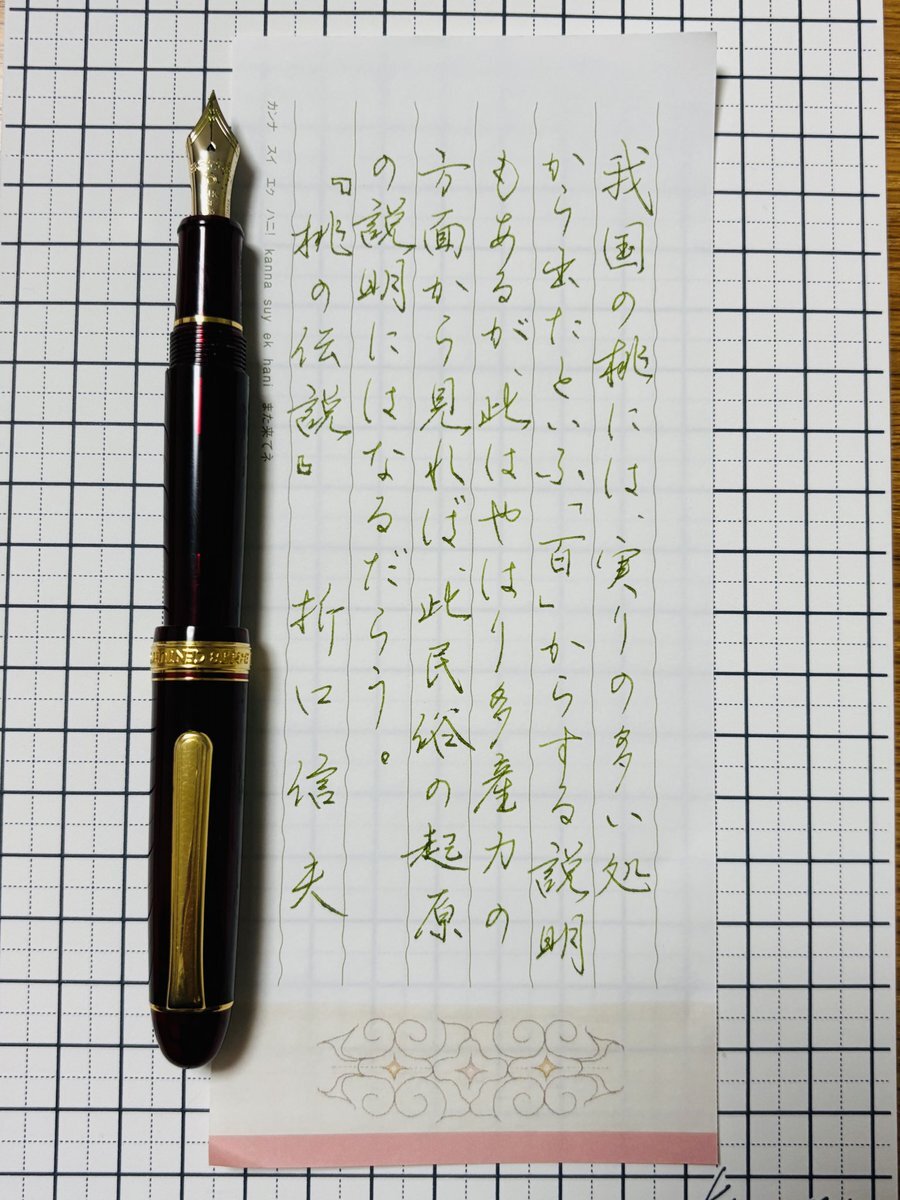 我国の桃には、実りの多い処
から出たといふ「百」からする説明
もあるが、此はやはり多産力の
方面から見れば、此民俗の起原
の説明にはなるだらう。
『桃の伝説』 折口信夫
カンナ スイ エク ハニ! kanna suy ek hani また来てネ